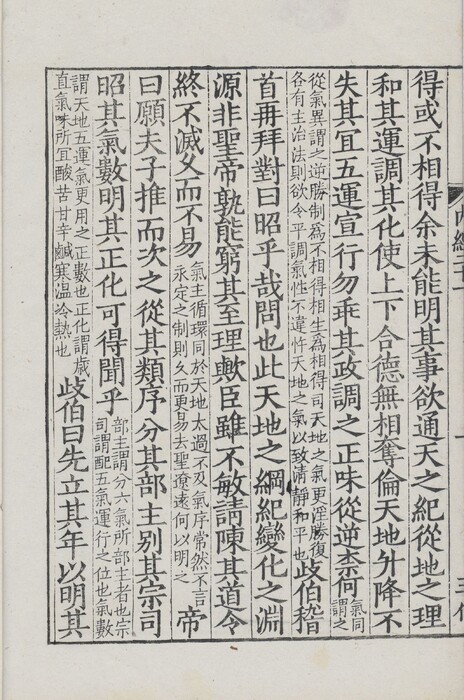 得或不相得余未能明其事欲通天之紀從地之理
和其運調其化使上下合德無相奪倫天地升降不
失其宜五運宣行勿乖其政調之正味從逆柰何氣同謂之
從氣異謂之逆勝制爲不相得相生爲相得司天地之氣更淫勝復
各有主治法則欲令平調氣性不違忤天地之氣以致清靜和平也歧伯稽
首再拜對曰昭乎哉問也此天地之綱紀變化之淵
源非聖帝孰能窮其至理歟臣雖不敏請陳其道令
終不滅久而不易氣主循環同於天地太過不及氣序常然不言
永定之制則久而更易去聖遼遠何以明之帝
曰願夫子推而次之從其類序分其部主別其宗司
昭其氣數明其正化可得聞乎部主謂分六氣所部主者也宗
司謂配五氣運行之位也氣數
謂天地五運氣更用之正數也正化謂歲
直氣味所宜酸苦甘辛鹹寒溫冷熱也歧伯曰先立其年以明其